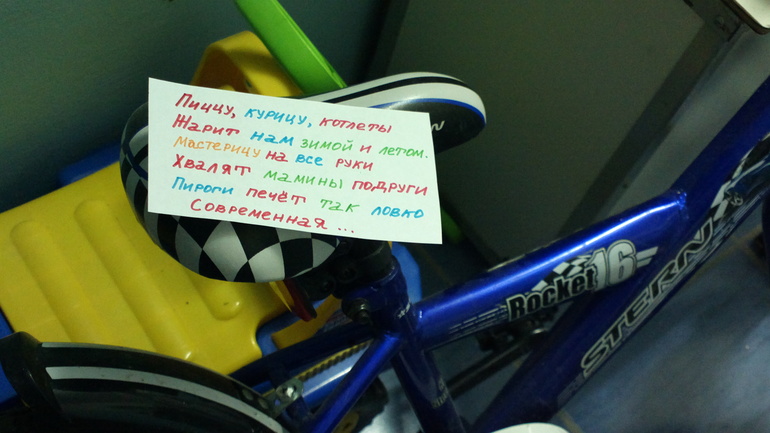 Пиццу, курицу, котлеты
Жарит нам зимой и летом.
Мастерицу на все руки
Хвалят мамины подруги
Пироги печёт так ловко
Современная ...
Rocket 16
STERN